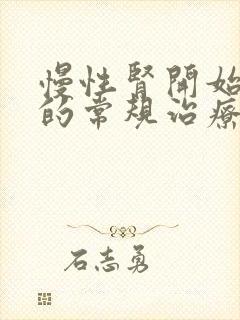 慢性肾開始
的常規治療
石志勇